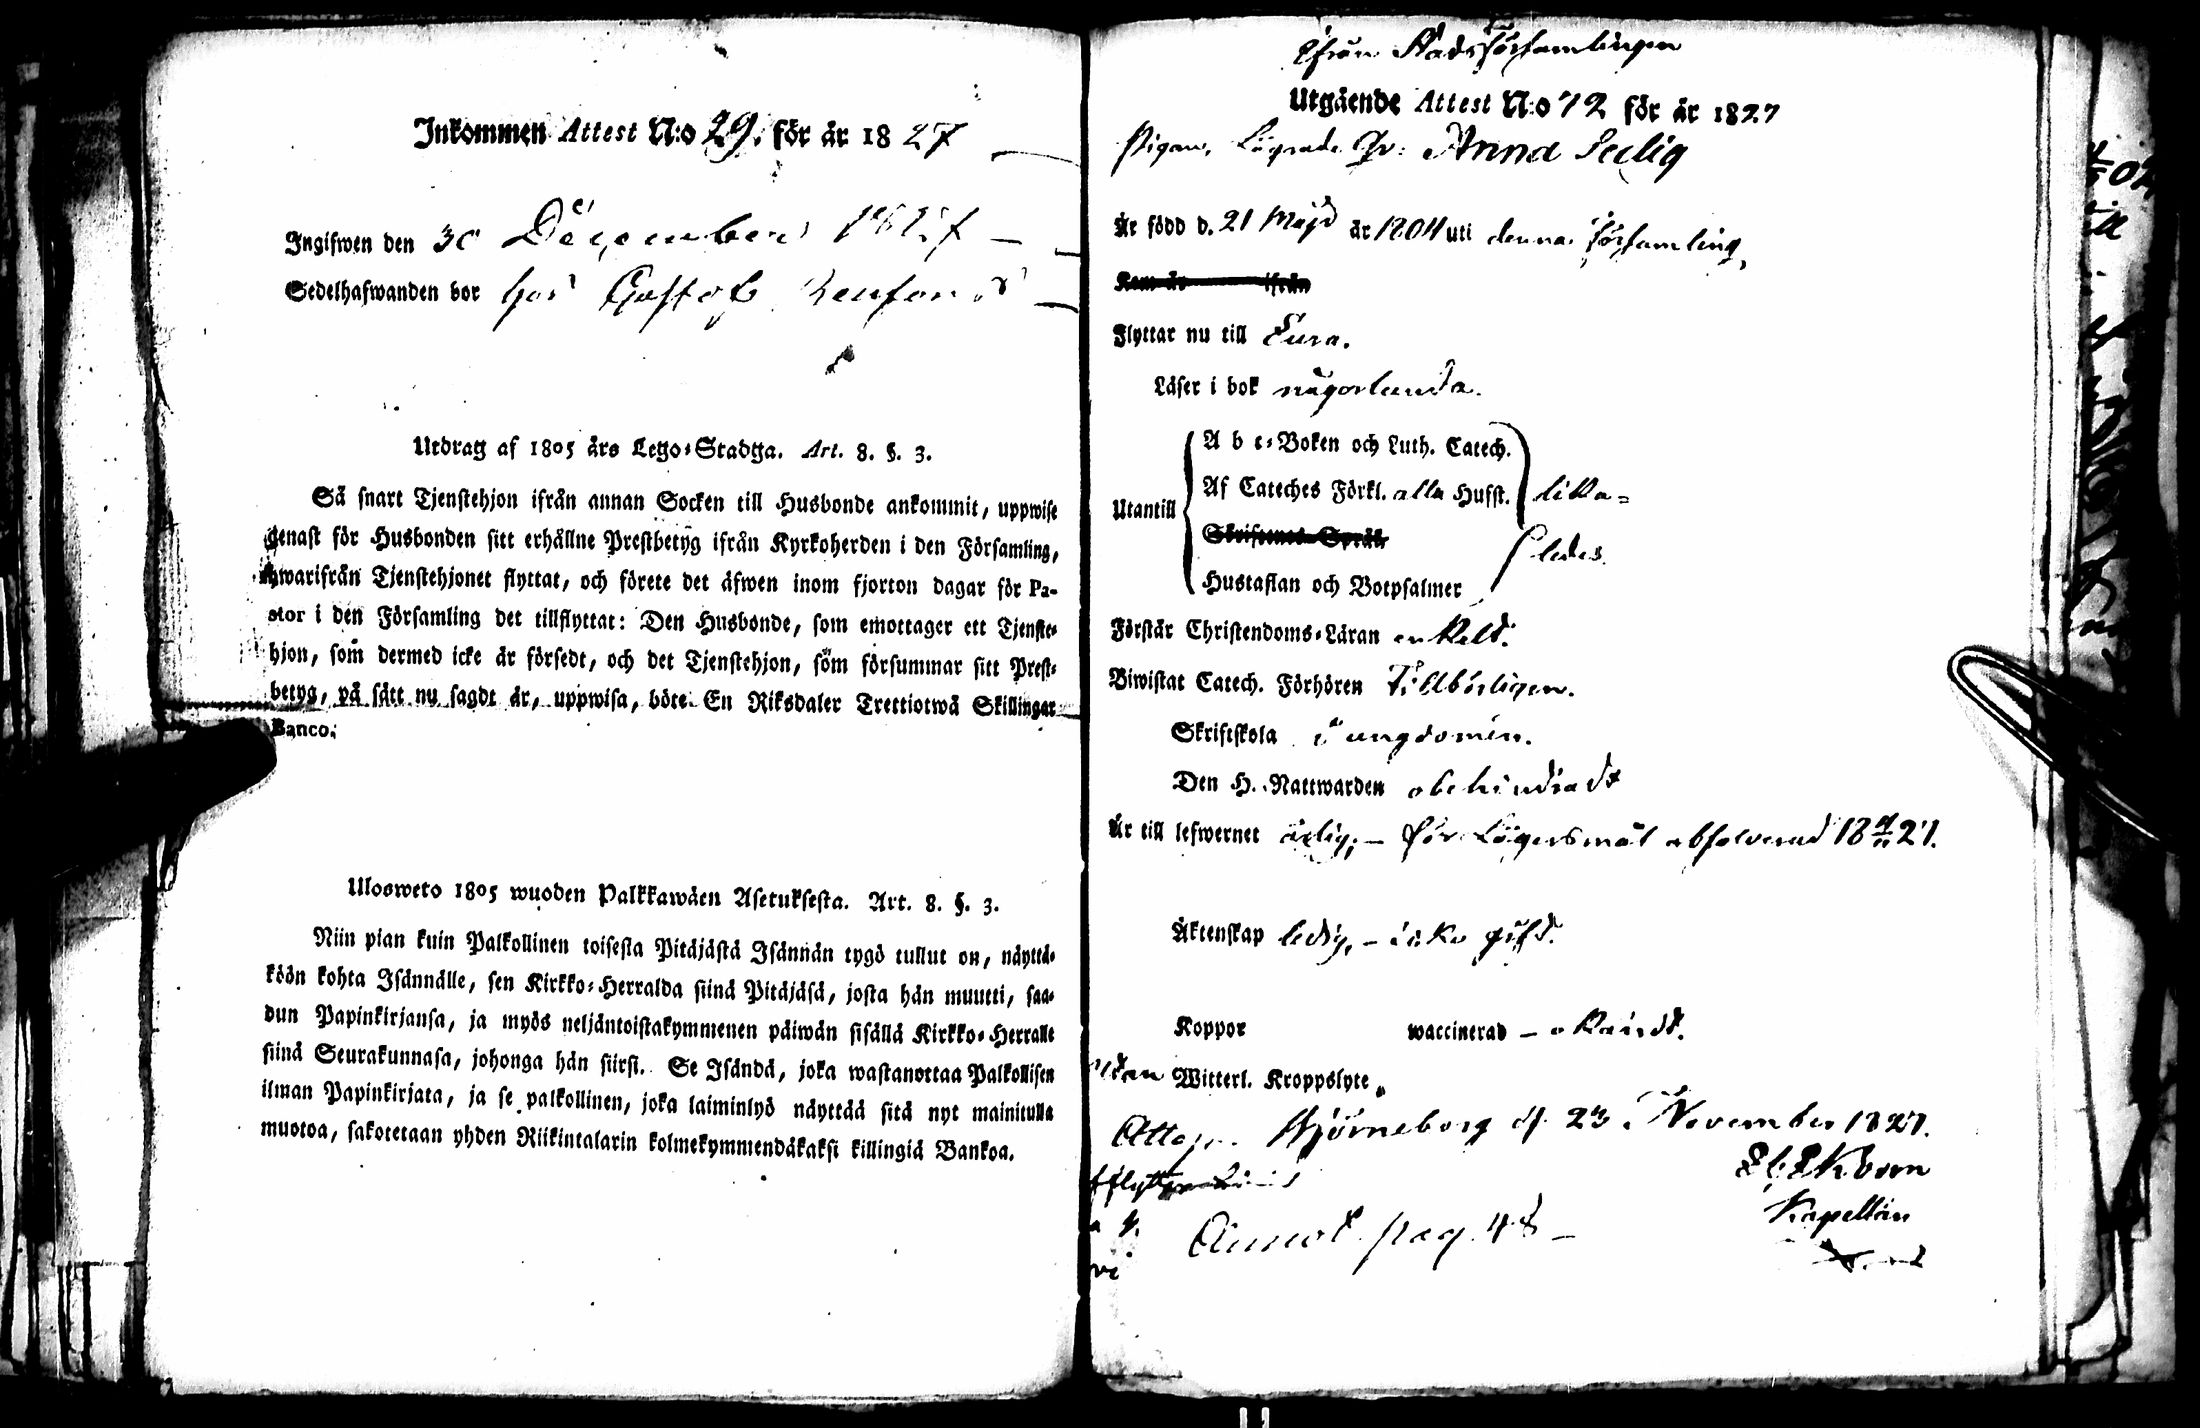 Inkommen Attest N:o 29. för år 1827
Ingifwen den 30 December 1827
Sedelhafwanden bor hos Gustaf
Utdrag af 1805 års Lego-Stadga. Art. 8. §. 3.
Så snart Tjenstehjon ifrån annan Socken till Husbonde ankommit, uppwise
genast för Husbonden sitt erhållne Prestbetyg ifrån Kyrkoherden i den Församling,
hwarifrån Tjenstehjonet flyttat, och förete det äfwen inom fjorton dagar för Pa-
stor i den Församling det tillflyttat: Den Husbonde, som emottager ett Tjenste-
hjon, som dermed icke är försedt, och det Tjenstehjon, som försummar sitt Prest-
betyg, på sätt nu sagdt är, uppwisa, böte En Riksdaler Trettiotwå Skillingar
Banco.
Ulosweto 1805 wuoden Palkkawäen Asetuksesta. Art. 8. §. 3.
Niin pian kuin Palkollinen toisesta Pitäjästä Isännän tygö tullut on, näyttä-
köön kohta Isännälle, sen Kirkko-Herralda siinä Pitäjäsä, josta hän muutti, saa-
dun Papinkirjansa, ja myös neljäntoistakymmenen päiwän sisällä Kirkko-Herralle
siinä Seurakunnasa, johonga hän siirsi. Se Isändä, joka wastanottaa Palkollisen
ilman Papinkirjata, ja se palkollinen, joka laiminlyö näyttää sitä nyt mainitulla
muotoa, sakotetaan yhden Riikintalarin kolmekymmendäkaksi killingiä Bankoa.
Ifrån Stadsförsamlingen
Utgående Attest N:o 72 för år 1827
Pigan, Lägrade Qv: Anna Seelig
Är född d. 21 Maji år 1804 uti denna församling,
Kom år ifrån
Flyttar nu till Eura.
Läser i bok någorlunda.
Utantill
A b c-Boken och Luth. Catech.
Af Cateches Förkl. alla Husst. lika=
Skriftenes Språk
ledes.
Hustaflan och Botpsalmer
Förstår Christendoms-Läran enkelt.
Biwistat Catech. Förhören Tillbörligen.
Skriftskola i ungdomen.
Den H. Nattwarden obehindradt
Är till lefwernet ärlig; – för Lägersmål absolverad 18 27.
Äktenskap ledig, – icke gift.
Koppor waccinerad – okändt.
utan Witterl. Kroppslyte.
Björneborg d. 23 November 1827.
Ekbom
Kapellan
Annot. pag. 48 –